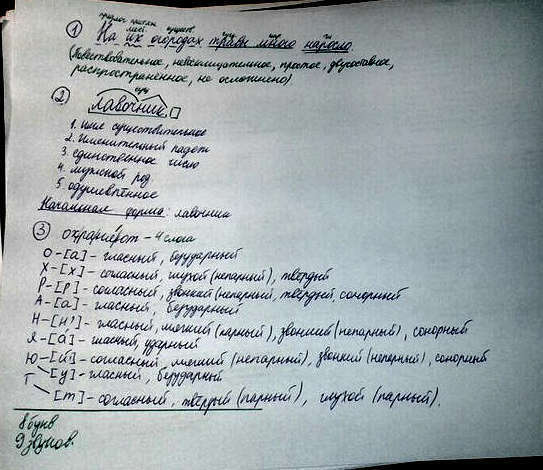 предлог притяж. мест. существ. сущ. нар. гл.
① На их огородах травы много наросло.
(Повествовательное, невосклицательное, простое, двусоставное,
распространённое, не осложнено)
сущ
② лавочник.
1. имя существительное
2. именительный падеж
3. единственное число
4. мужской род
5. одушевлённое
Начальная форма: лавочник
③ охраняют - 4 слога
О - [а] - гласный, безударный
Х - [х] - согласный, глухой (непарный), твёрдый
Р - [р] - согласный, звонкий (непарный, твёрдый, сонорный
А - [а] - гласный, безударный
Н - [н'] - гласный, мягкий (парный), звонкий (непарный), сонорный
Я - [а́] - гласный, ударный
Ю - [й'] - согласный, мягкий (непарный), звонкий (непарный), сонорный
[у] - гласный, безударный
Т [т] - согласный, твёрдый (парный), глухой (парный).
8 букв
9 звуков.